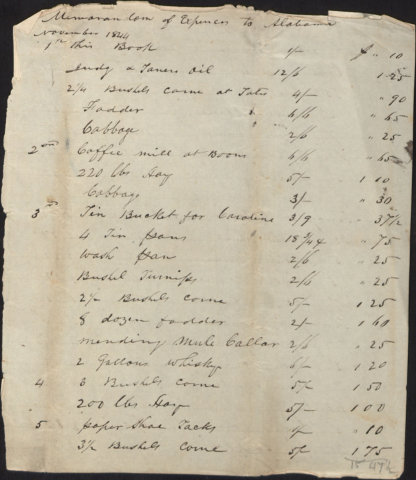 Memorandom of Expences to Alabama
November 1844
1st this Book 1/- $ " 10
Indg & Taners oil 12/6 1 25
2 1/4 Bushels corne at Tates 4/- " 90
Fodder 6/6 " 65
Cabbage 2/6 " 25
2nd Coffie mill at Boons 6/6 " 65
220 lbs Hay 5/- 1 10
Cabbage 3/- " 30
3 Tin Bucket for Caroline 3/9 " 37 1/2
4 Tin pans 18 3/4 " 75
wash pan 2/6 " 25
Bushel Turnips 2/6 " 25
2 1/2 Bushels corne 5/- 1 25
8 dozen fodder 2/- 1 60
mending Mule Collar 2/6 " 25
2 Gallons whisky 6/- 1 20
4 3 Bushels corne 5/- 1 50
200 lbs Hay 5/- 1 00
5 paper Shoe Tacks " 10
3 1/2 Bushels corne 5/- 1 75
15 47 1/2